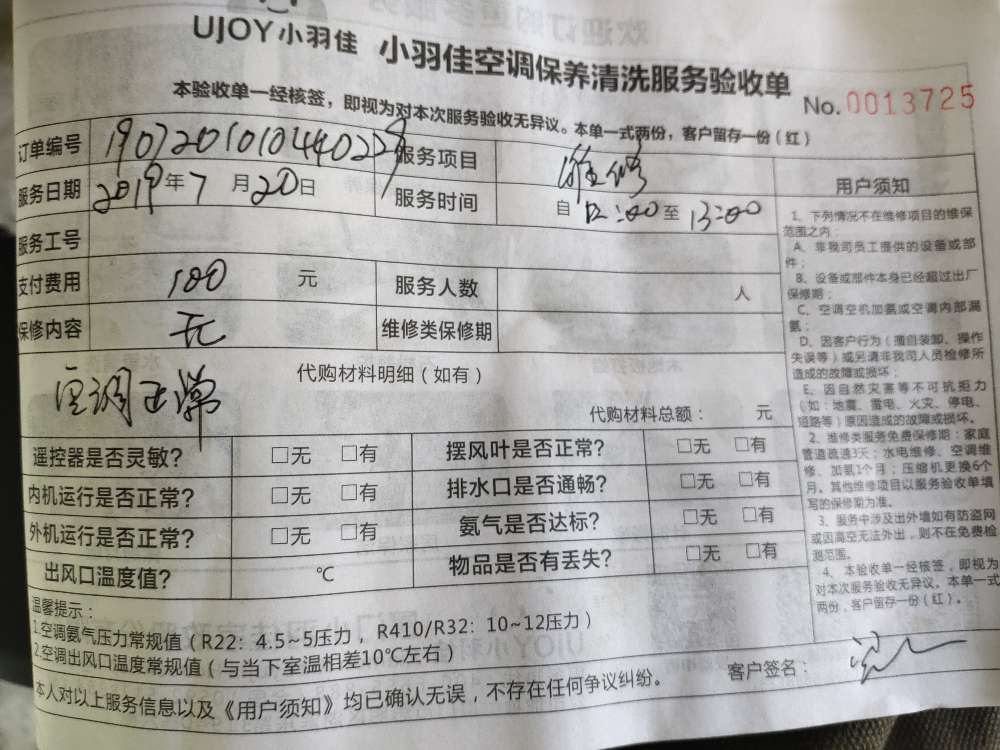 UJOY小羽佳 小羽佳空调保养清洗服务验收单
No.0013725
本验收单一经核签，即视为对本次服务验收无异议。本单一式两份，客户留存一份（红）
订单编号 服务项目 维修
服务日期 2019年7月20日 服务时间 自12:00至13:00
服务工号
支付费用 100 元 服务人数 人
保修内容 无 维修类保修期
代购材料明细（如有）
空调正常
代购材料总额： 元
遥控器是否灵敏？ □无 □有 摆风叶是否正常？ □无 □有
内机运行是否正常？ □无 □有 排水口是否通畅？ □无 □有
外机运行是否正常？ □无 □有 氨气是否达标？ □无 □有
出风口温度值？ ℃ 物品是否有丢失？ □无 □有
温馨提示：
1.空调氨气压力常规值（R22：4.5~5压力，R410/R32：10~12压力）
2.空调出风口温度常规值（与当下室温相差10℃左右）
本人对以上服务信息以及《用户须知》均已确认无误，不存在任何争议纠纷。
客户签名：
用户须知
1、下列情况不在维修项目的维保
范围之内：
A、非我司员工提供的设备或部
件；
B、设备或部件本身已经超过出厂
保修期；
C、空调空机加氨或空调内部漏
氨；
D、因客户行为（擅自装卸、操作
失误等）或另请非我司人员检修所
造成的故障或损坏；
E、因自然灾害等不可抗拒力
（如：地震、雷电、火灾、停电、
短路等）原因造成的故障或损坏。
2、维修类服务免费保修期：家庭
管道疏通3天；水电维修、空调维
修、加氨1个月；压缩机更换6个
月。其他维修项目以服务验收单填
写的保修期为准。
3、服务中涉及出外墙如有防盗网
或因高空无法外出，则不在免费检
测范围。
4、本验收单一经核签，即视为
对本次服务验收无异议。本单一式
两份，客户留存一份（红）。